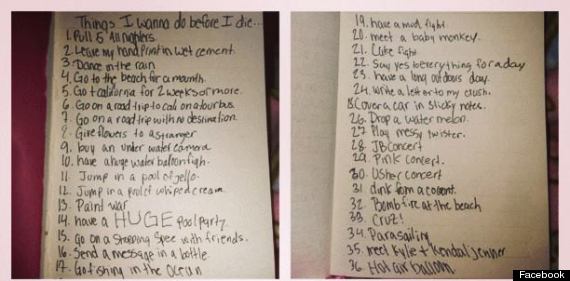 Things I wanna do before I die...
1. Pull 5 All nighters.
2. Leave my hand Print in wet cement.
3. Dance in the rain
4. Go to the beach for a mounth.
5. Go t california for 2 weeks or more.
6. Go on a road trip to cali on a tour bus.
7. Go on a road trip with no destination.
8. Give flowers to a stranger
9. buy an under water camera
10. have a huge water balloon figh.
11. Jump in a pool of jello.
12. Jump in a pool of whiped cream.
13. Paint war
14. have a HUGE pool party.
15. Go on a shopping spee with friends.
16. Send a message in a bottle
17. Go fishing in the ocean
19. have a mud fight.
20. meet a baby monkey.
21. Cake fight
22. Say yes to everything for a day
23. have a long outdours day.
24. write a letter to my crush.
Cover a car in sticky notes.
26. Drop a water melon.
27 Play messy twister.
28. JB Concert
29. Pink concert.
30. Usher concert
31. drink from a coconut.
32. Bomb fire at the beach
33. Cruz!
34. Parasailing
35. meet Kylie + Kendal jenner
36. Hot air balloon
Facebook